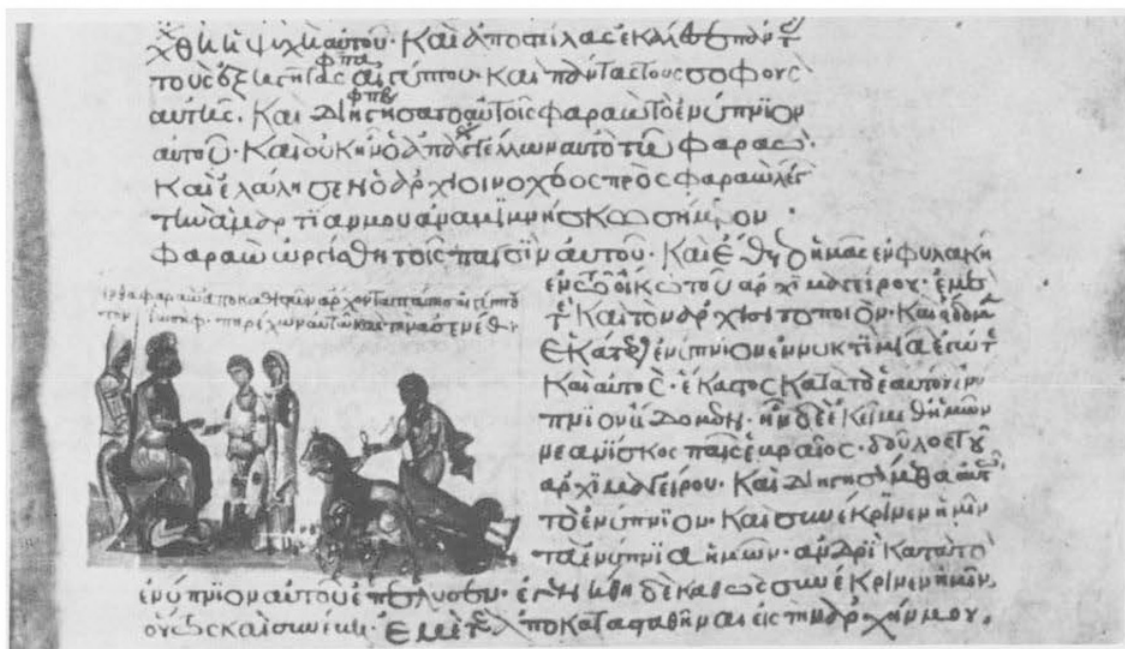 χθη ἡ ψυχὴ αὐτοῦ· Καὶ ἀποστείλας ἐκάλεσε πάντ
τοὺς ἐξηγητὰς αἰγύπτου· Καὶ πάντας τοὺς σοφοὺς
αὐτῆς. Καὶ διηγήσατο αὐτοῖς φαραὼ τὸ ἐνύπνιον
αὐτοῦ· Καὶ οὐκ ἦν ὁ ἀπαγγέλλων αὐτὸ τῶ φαραώ·
Καὶ ἐλάλησεν ὁ ἀρχιοινοχόος πρὸς φαραὼ λέγ
τὴν ἁμαρτίαν μου ἀναμιμνήσκω σήμερον·
φαραὼ ὠργίσθη τοῖς παισὶν αὐτοῦ· Καὶ ἔθετο ἡμᾶς ἐν φυλακῆ
ἐν τῶ οἴκω τοῦ ἀρχιμαγείρου· ἐμέ
τε Καὶ τὸν ἀρχισιτοποιόν· Καὶ ἴδομεν
ἑκάτεροι ἐνύπνιον ἐν νυκτὶ μιᾶ ἐγώ τε
Καὶ αὐτός· ἕκαστος κατὰ τὸ ἑαυτοῦ ἐνύ
πνιον εἴδομεν· ἦν δὲ ἐκεῖ μεθ' ἡμῶν
νεανίσκος παῖς ἑβραῖος· δοῦλος τοῦ
ἀρχιμαγείρου· Καὶ διηγησάμεθα αὐτῶ
τὸ ἐνύπνιον· Καὶ συνέκρινεν ἡμῖν
τὰ ἐνύπνια ἡμῶν· ἀνδρὶ κατὰ τὸ
ἐνύπνιον αὐτοῦ ἐπέλυσεν· ἐγενήθη δὲ καθὼς συνέκρινεν ἡμῖν,
οὕτως καὶ συνέβη· ἐμέ τε ἀποκατασταθῆναι εἰς τὴν ἀρχήν μου,
ἔνθα φαραὼ ἀποκαθιστῶν ἄρχοντα πάσης αἰγύπτου
τὸν ἰωσήφ· παρέχων αὐτῶ καὶ τὴν ἀσενέθ